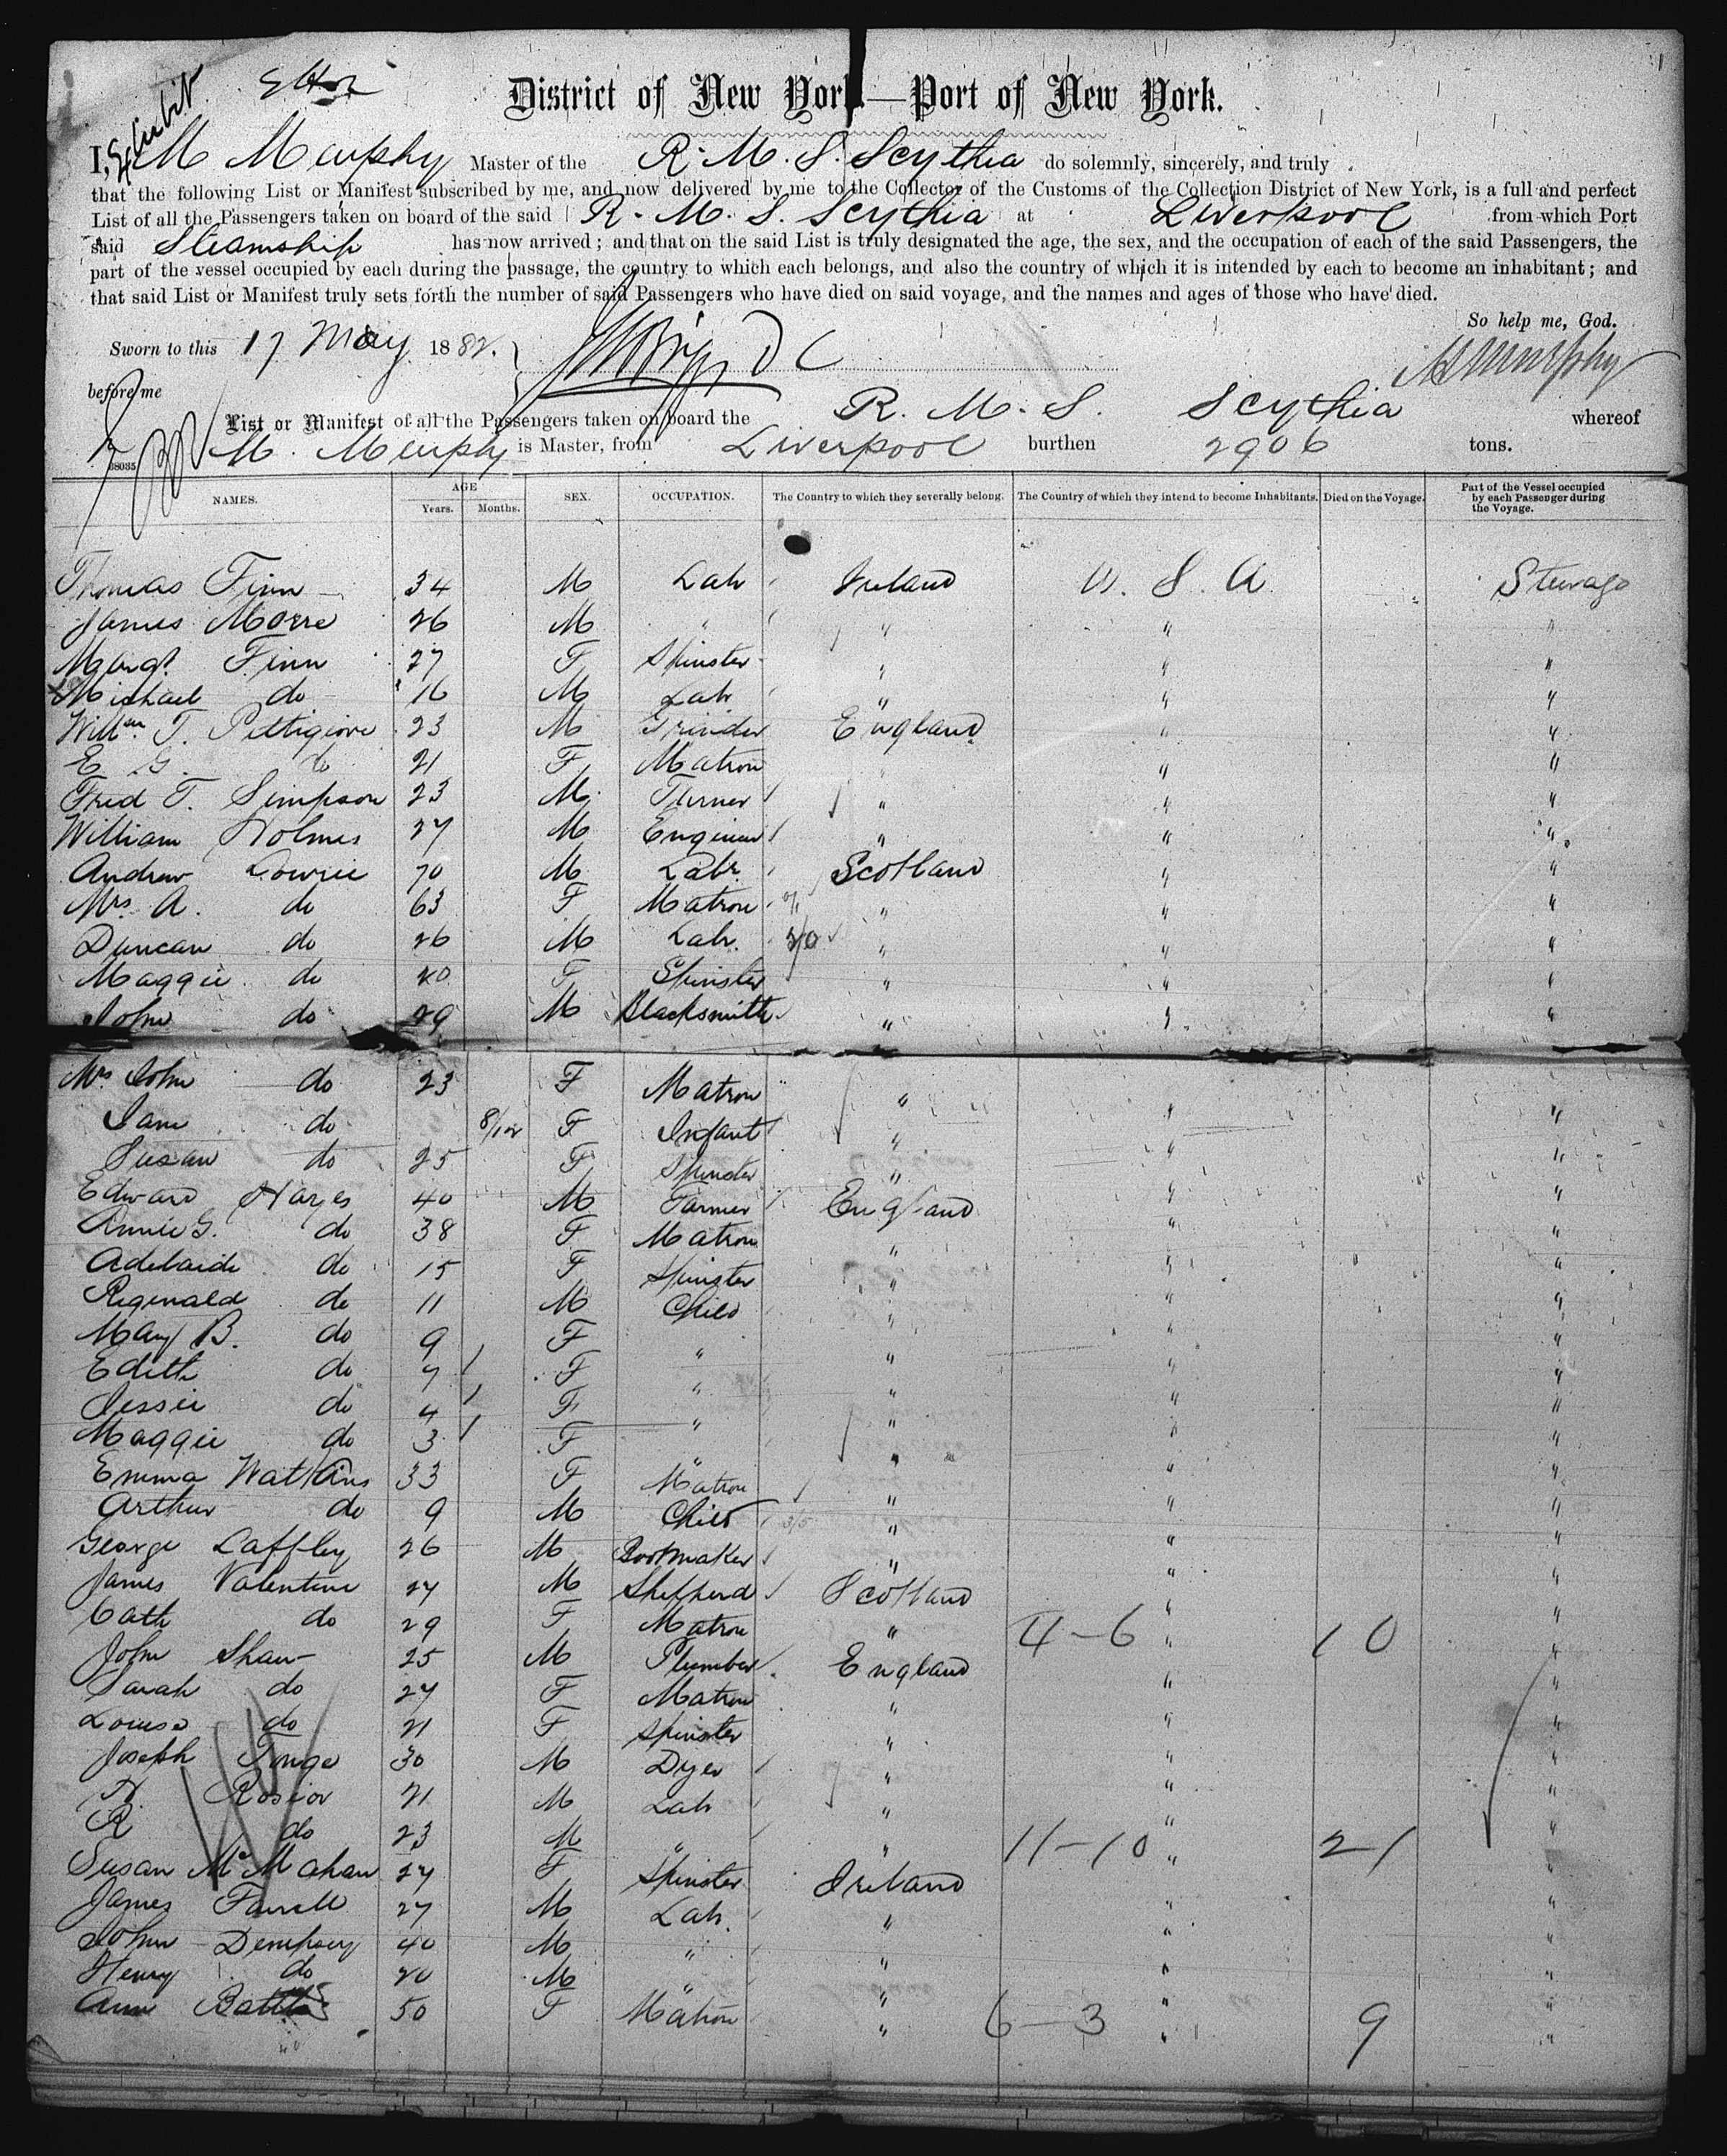 District of New York—Port of New York.
I, M Murphy Master of the R. M. S. Scythia do solemnly, sincerely, and truly
that the following List or Manifest subscribed by me, and now delivered by me to the Collector of the Customs of the Collection District of New York, is a full and perfect
List of all the Passengers taken on board of the said R. M. S. Scythia at Liverpool from which Port
said Steamship has now arrived; and that on the said List is truly designated the age, the sex, and the occupation of each of the said Passengers, the
part of the vessel occupied by each during the passage, the country to which each belongs, and also the country of which it is intended by each to become an inhabitant; and
that said List or Manifest truly sets forth the number of said Passengers who have died on said voyage, and the names and ages of those who have died.
So help me, God.
Sworn to this 17 May 1882.
Murphy
before me
List or Manifest of all the Passengers taken on board the R. M. S. Scythia whereof
M. Murphy is Master, from Liverpool burthen 2906 tons.
NAMES. AGE Years. Months. SEX. OCCUPATION. The Country to which they severally belong. The Country of which they intend to become Inhabitants. Died on the Voyage. Part of the Vessel occupied by each Passenger during the Voyage.
Thomas Finn 34 M Labr Ireland U. S. A Steerage
James 26 M " " " "
Margt Finn 27 F Spinster " " "
Michael do 16 M Labr " " "
Willm T. 23 M Grinder England " "
E G. do 21 F Matron " " "
Fred T. Simpson 23 M Turner " " "
William Holmes 27 M Engineer " " "
Andrew Lowrie 70 M Labr Scotland " "
Mrs A. do 63 F Matron " " "
Duncan do 26 M Labr. " " "
Maggie do 20 F Spinster " " "
John do 29 M Blacksmith " " "
Mrs John do 23 F Matron " " "
Jane do 8/12 F Infant " " "
Susan do 25 F Spinster " " "
Edward Hayes 40 M Farmer England " "
Annie G. do 38 F Matron " " "
Adelaide do 15 F Spinster " " "
Reginald do 11 M Child " " "
Mary B. do 9 F " " " "
Edith do 7 F " " " "
Jessie do 4 F " " " "
Maggie do 3 F " " " "
Emma Watkins 33 F Matron " " "
Arthur do 9 M Child " " "
George Laffley 26 M Bootmaker " " "
James Valentine 27 M Shepherd Scotland " "
Cath do 29 F Matron " 4-6 " 10 "
John Shaw 25 M Plumber England " "
Sarah do 27 F Matron " " "
Louisa do 21 F Spinster " " "
Joseph Tonge 30 M Dyer " " "
H. Rosior 21 M Labr " " "
R do 23 M " " 11-10 " 21 "
Susan McMahan 27 F Spinster Ireland " "
James Farrell 27 M Labr. " " "
John Dempsey 40 M " " " "
Henry do 20 M " " " "
Ann 50 F Matron " 6-3 " 9 "